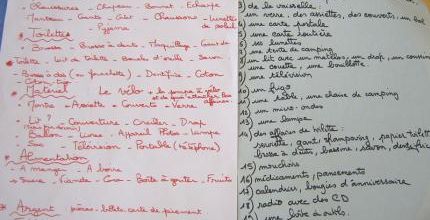 Chaussures - Chapeau - Bonnet - Echarpe
Manteau - Gants - Gilet - Chaussons - Lunettes de soleil
Pyjama
* Toilettes
Brosse - Brosse à dents - Maquillage - Gant de
Toilette - Lait de toilette - Boucles d'oreille - Savon
Brosse à dos (ou fourchette) - Dentifrice - Coton
Coton-tige
* Matériel Le vélo + la pompe à vélo
Montre - Assiette - Couverts - Verre
Lit ? - Couverture - Oreiller - Drap
Ballon - Livres - Appareil Photos - Lampe
Sac - Télévision - Portable (téléphone)
* Alimentation
A manger - A boire
Gourde - Boîte à goûter - Fruits
* Argent pièces - billets - carte de paiement
3) de la vaisselle :
un verre, des assiettes, des couverts, un bol
4) une carte postale
5) une carte routière
6) ses lunettes
7) une tente de camping
8) un lit avec un matelas, un drap, un coussin
une couette, une bouillotte
9) une télévision
10) un frigo
11) une table, une chaise de camping
12) un micro-ondes
13) une lampe
14) des affaires de toilette :
serviette, gant, shampooing, papier toilette
brosse à dents, bassine, savon, dentifrice
15) mouchoirs
16) médicaments, pansements
17) calendrier, bougies d'anniversaire
18) radio avec des CD
19) une boîte à outils